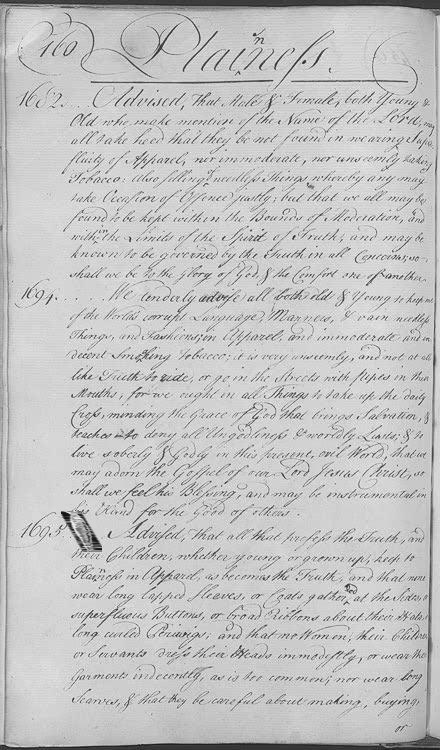 160
Plainness.
1682... Advised, that Male & Female, both Young &
Old who make mention of the Name of the Lord, may
all take heed that they be not found in wearing Supr
fluity of Apparel, nor immoderate, nor unseemly taking
Tobacco: Also selling needless Things whereby any may
take Occasion of Offence justly; but that we all may be
found to be kept within the Bounds of Moderation, and
within the Limits of the Spirit of Truth, and may be
known to be governed by the Truth in all Concerns, so
shall we be to the Glory of God, & the Comfort one of another.
1694..... We tenderly advise all both old & Young to keep out
of the Worlds corrupt Language, Manners, & vain needless
Things, and Fashions, in Apparel, and immoderate and in
decent Smoking Tobacco; it is very unseemly, and not at all
like Truth to ride, or go in the Streets with pipes in their
Mouths, for we ought in all Things to take up the daily
Cross, minding the Grace of God that brings Salvation, &
teaches to deny all Ungodliness & worldly Lusts, & to
live soberly & Godly in this present, evil World, that we
may adorn the Gospel of our Lord Jesus Christ, so
shall we feel his Blessing, and may be instrumental in
his Hand for the Good of others.
1695. Advised, that all that profess the Truth, and
their Children, whether young or grown up, keep to
Plainness in Apparel, as becomes the Truth, and that none
wear long lapped Sleaves, or Coats gathered at the Sides, or
superfluous Buttons, or broad Ribbons about their Hats, or
long curled Periwigs; and that no Women, their Children
or Servants dress their Heads immodestly, or wear their
Garments indecently, as is too common; nor wear long
Scarves, & that they be careful about making, buying,
or